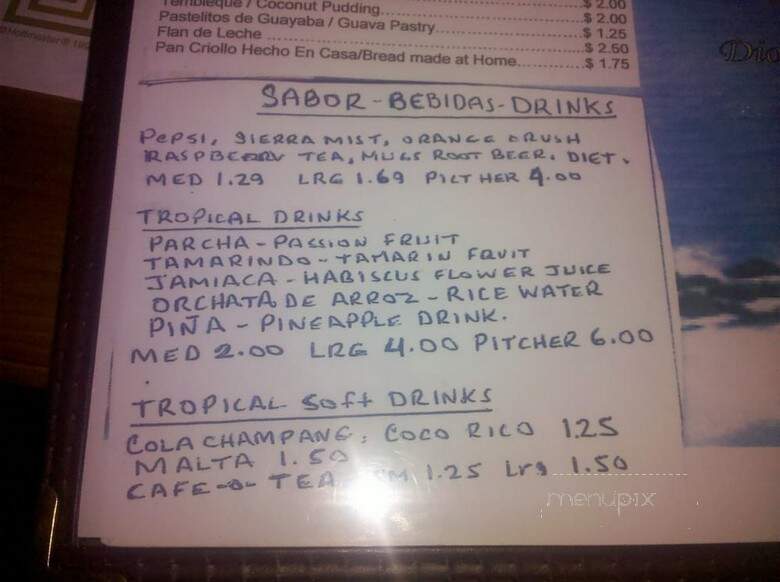 Tembleque / Coconut Pudding...............$ 2.00
Pastelitos de Guayaba / Guava Pastry...............$ 2.00
Flan de Leche...............$ 1.25
$ 2.50
Pan Criollo Hecho En Casa/Bread made at Home...............$ 1.75
SABOR - BEBIDAS - DRINKS
PEPSI, SIERRA MIST, ORANGE CRUSH
RASPBERRY TEA, MUGS ROOT BEER, DIET.
MED 1.29 LRG 1.69 PITCHER 4.00
TROPICAL DRINKS
PARCHA - PASSION FRUIT
TAMARINDO - TAMARIN FRUIT
JAMIACA - HABISCUS FLOWER JUICE
ORCHATA DE ARROZ - RICE WATER
PIÑA - PINEAPPLE DRINK.
MED 2.00 LRG 4.00 PITCHER 6.00
TROPICAL SOFT DRINKS
COLA CHAMPANG, COCO RICO 1.25
MALTA 1.50
CAFE -O- TEA SM 1.25 Lrg 1.50
menupix